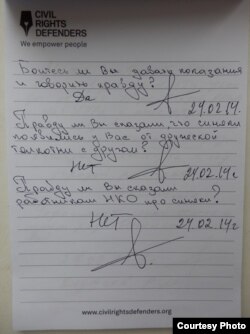 CIVIL
RIGHTS
DEFENDERS
We empower people
Боитесь ли Вы давать показания
и говорить правду?
Да
24.02.14г.
Правду ли Вы сказали, что синяки
появились у Вас от дружеской
толкотни с другом?
Нет
24.02.14г.
Правду ли Вы сказали
работникам НКО про синяки?
Нет
24.02.14г
www.civilrightsdefenders.org
Courtesy Photo